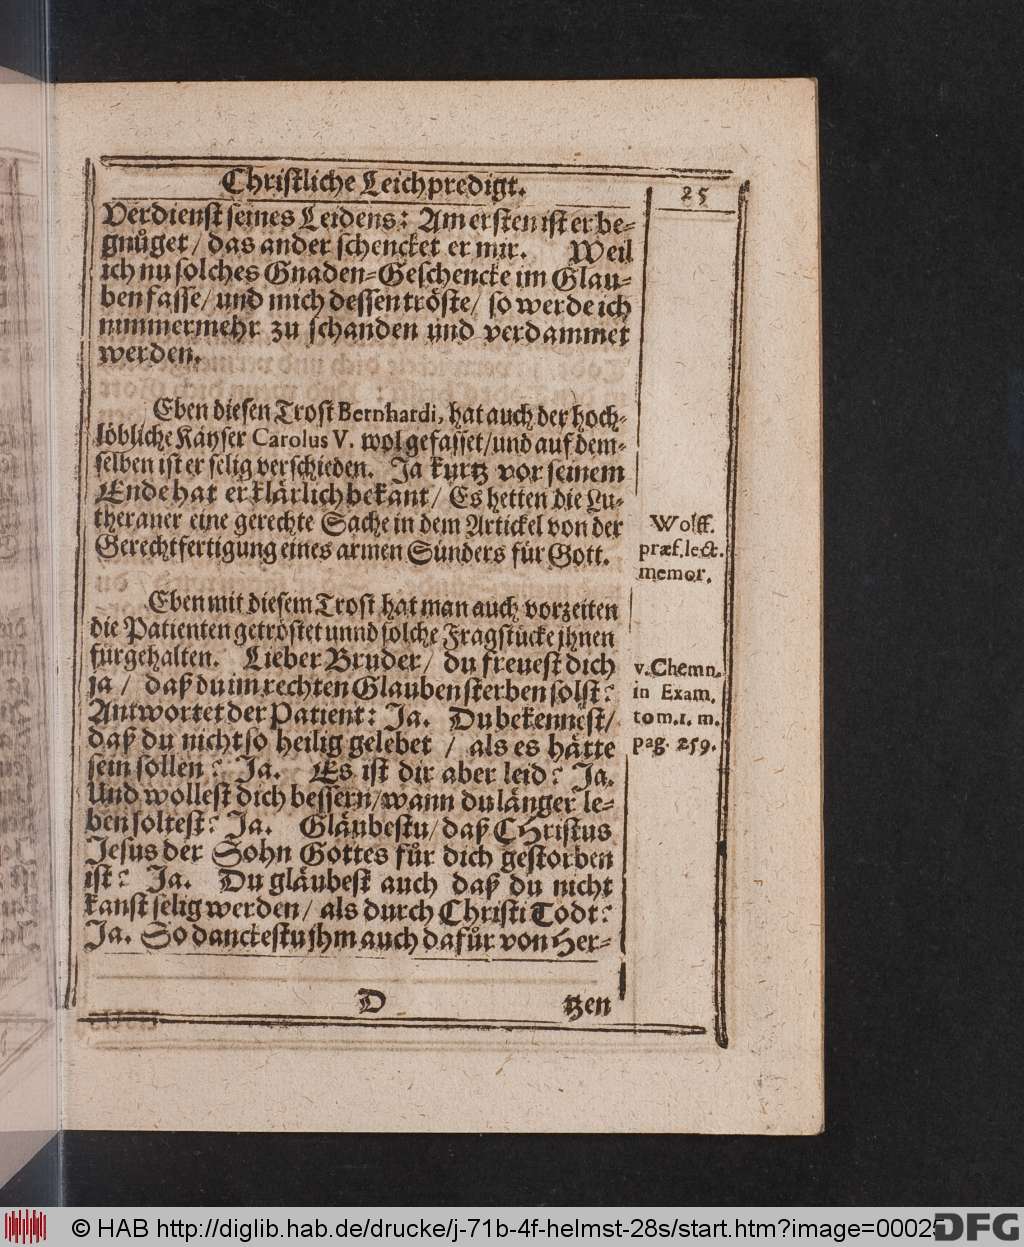 Christliche Leichpredigt.
25
Verdienst seines Leidens: Am ersten ist er be-
gnůget / das ander schencket er mir. Weil
ich nu solches Gnaden-Geschencke im Glau-
ben fasse / und mich dessen tröste / so werde ich
nimmermehr zu schanden und verdammet
werden.
Eben diesen Trost Bernhardi, hat auch der hoch-
löbliche Käyser Carolus V. wol gefasset / und auf dem-
selben ist er selig verschieden. Ja kurtz vor seinem
Ende hat er klärlich bekant / Es hetten die Lu-
theraner eine gerechte Sache in dem Artickel von der
Gerechtfertigung eines armen Sünders für Gott.
Wolff.
præf. lect.
memor.
Eben mit diesem Trost hat man auch vorzeiten
die Patienten getröstet unnd solche Fragstücke jhnen
fürgehalten. Lieber Bruder / du freuest dich
ja / daß du im rechten Glauben sterben solst?
Antwortet der Patient: Ja. Du bekennest /
daß du nicht so heilig gelebet / als es hätte
sein sollen? Ja. Es ist dir aber leid? Ja.
Und wollest dich bessern / wann du länger le-
ben soltest? Ja. Gläubestu / daß CHristus
Jesus der Sohn Gottes fůr dich gestorben
ist? Ja. Du gläubest auch daß du nicht
kanst selig werden / als durch Christi Todt?
Ja. So danckestu jhm auch dafůr von Her-
v. Chemn.
in Exam.
tom. 1. m.
pag. 259.
D
tzen
© HAB http://diglib.hab.de/drucke/j-71b-4f-helmst-28s/start.htm?image=00025
DFG